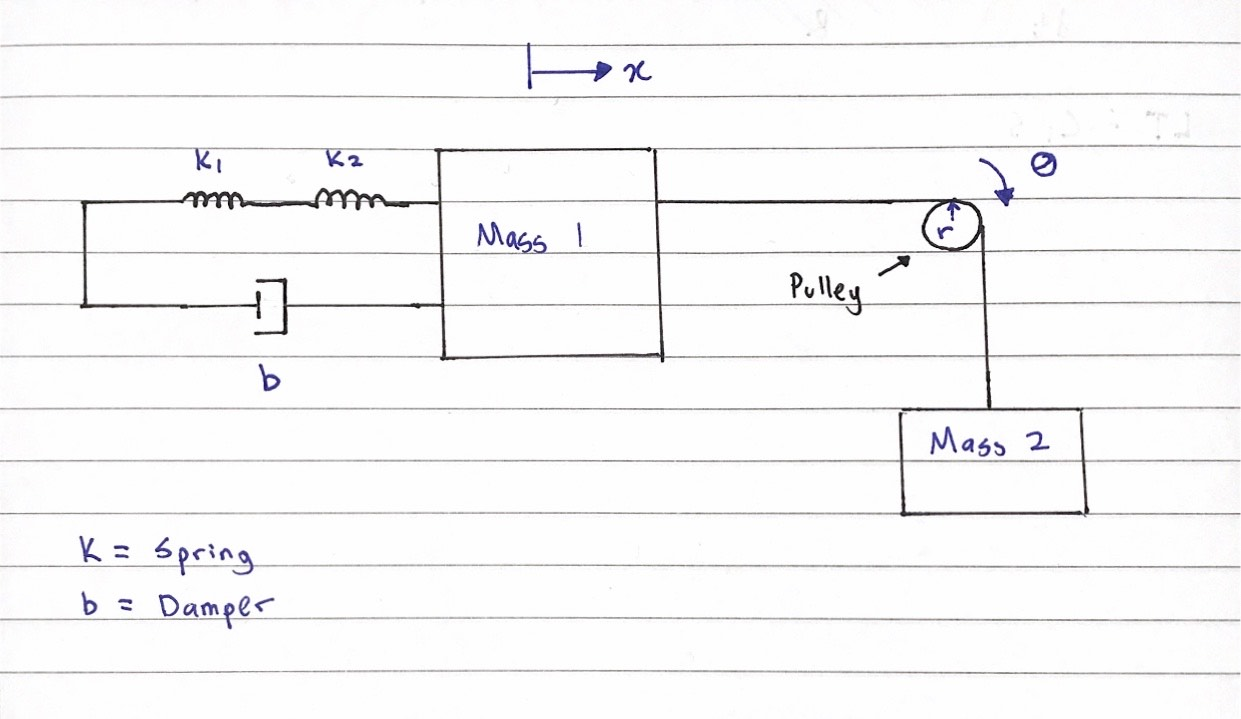 x
K1 K2
θ
Mass 1
r
Pulley
b
Mass 2
K = Spring
b = Damper